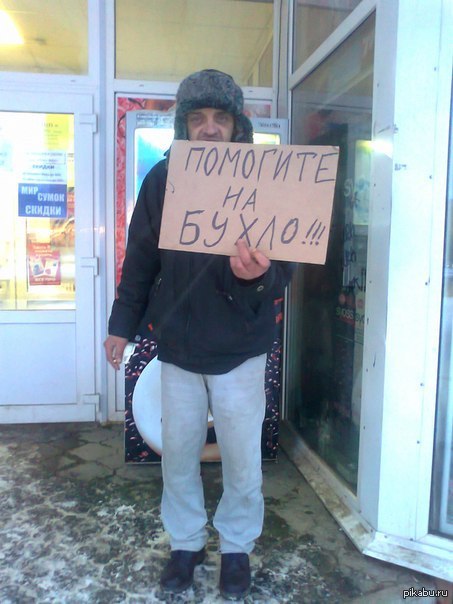 ПОМОГИТЕ
НА
БУХЛО!!!
МИР
СУМОК
СКИДКИ
pikabu.ru